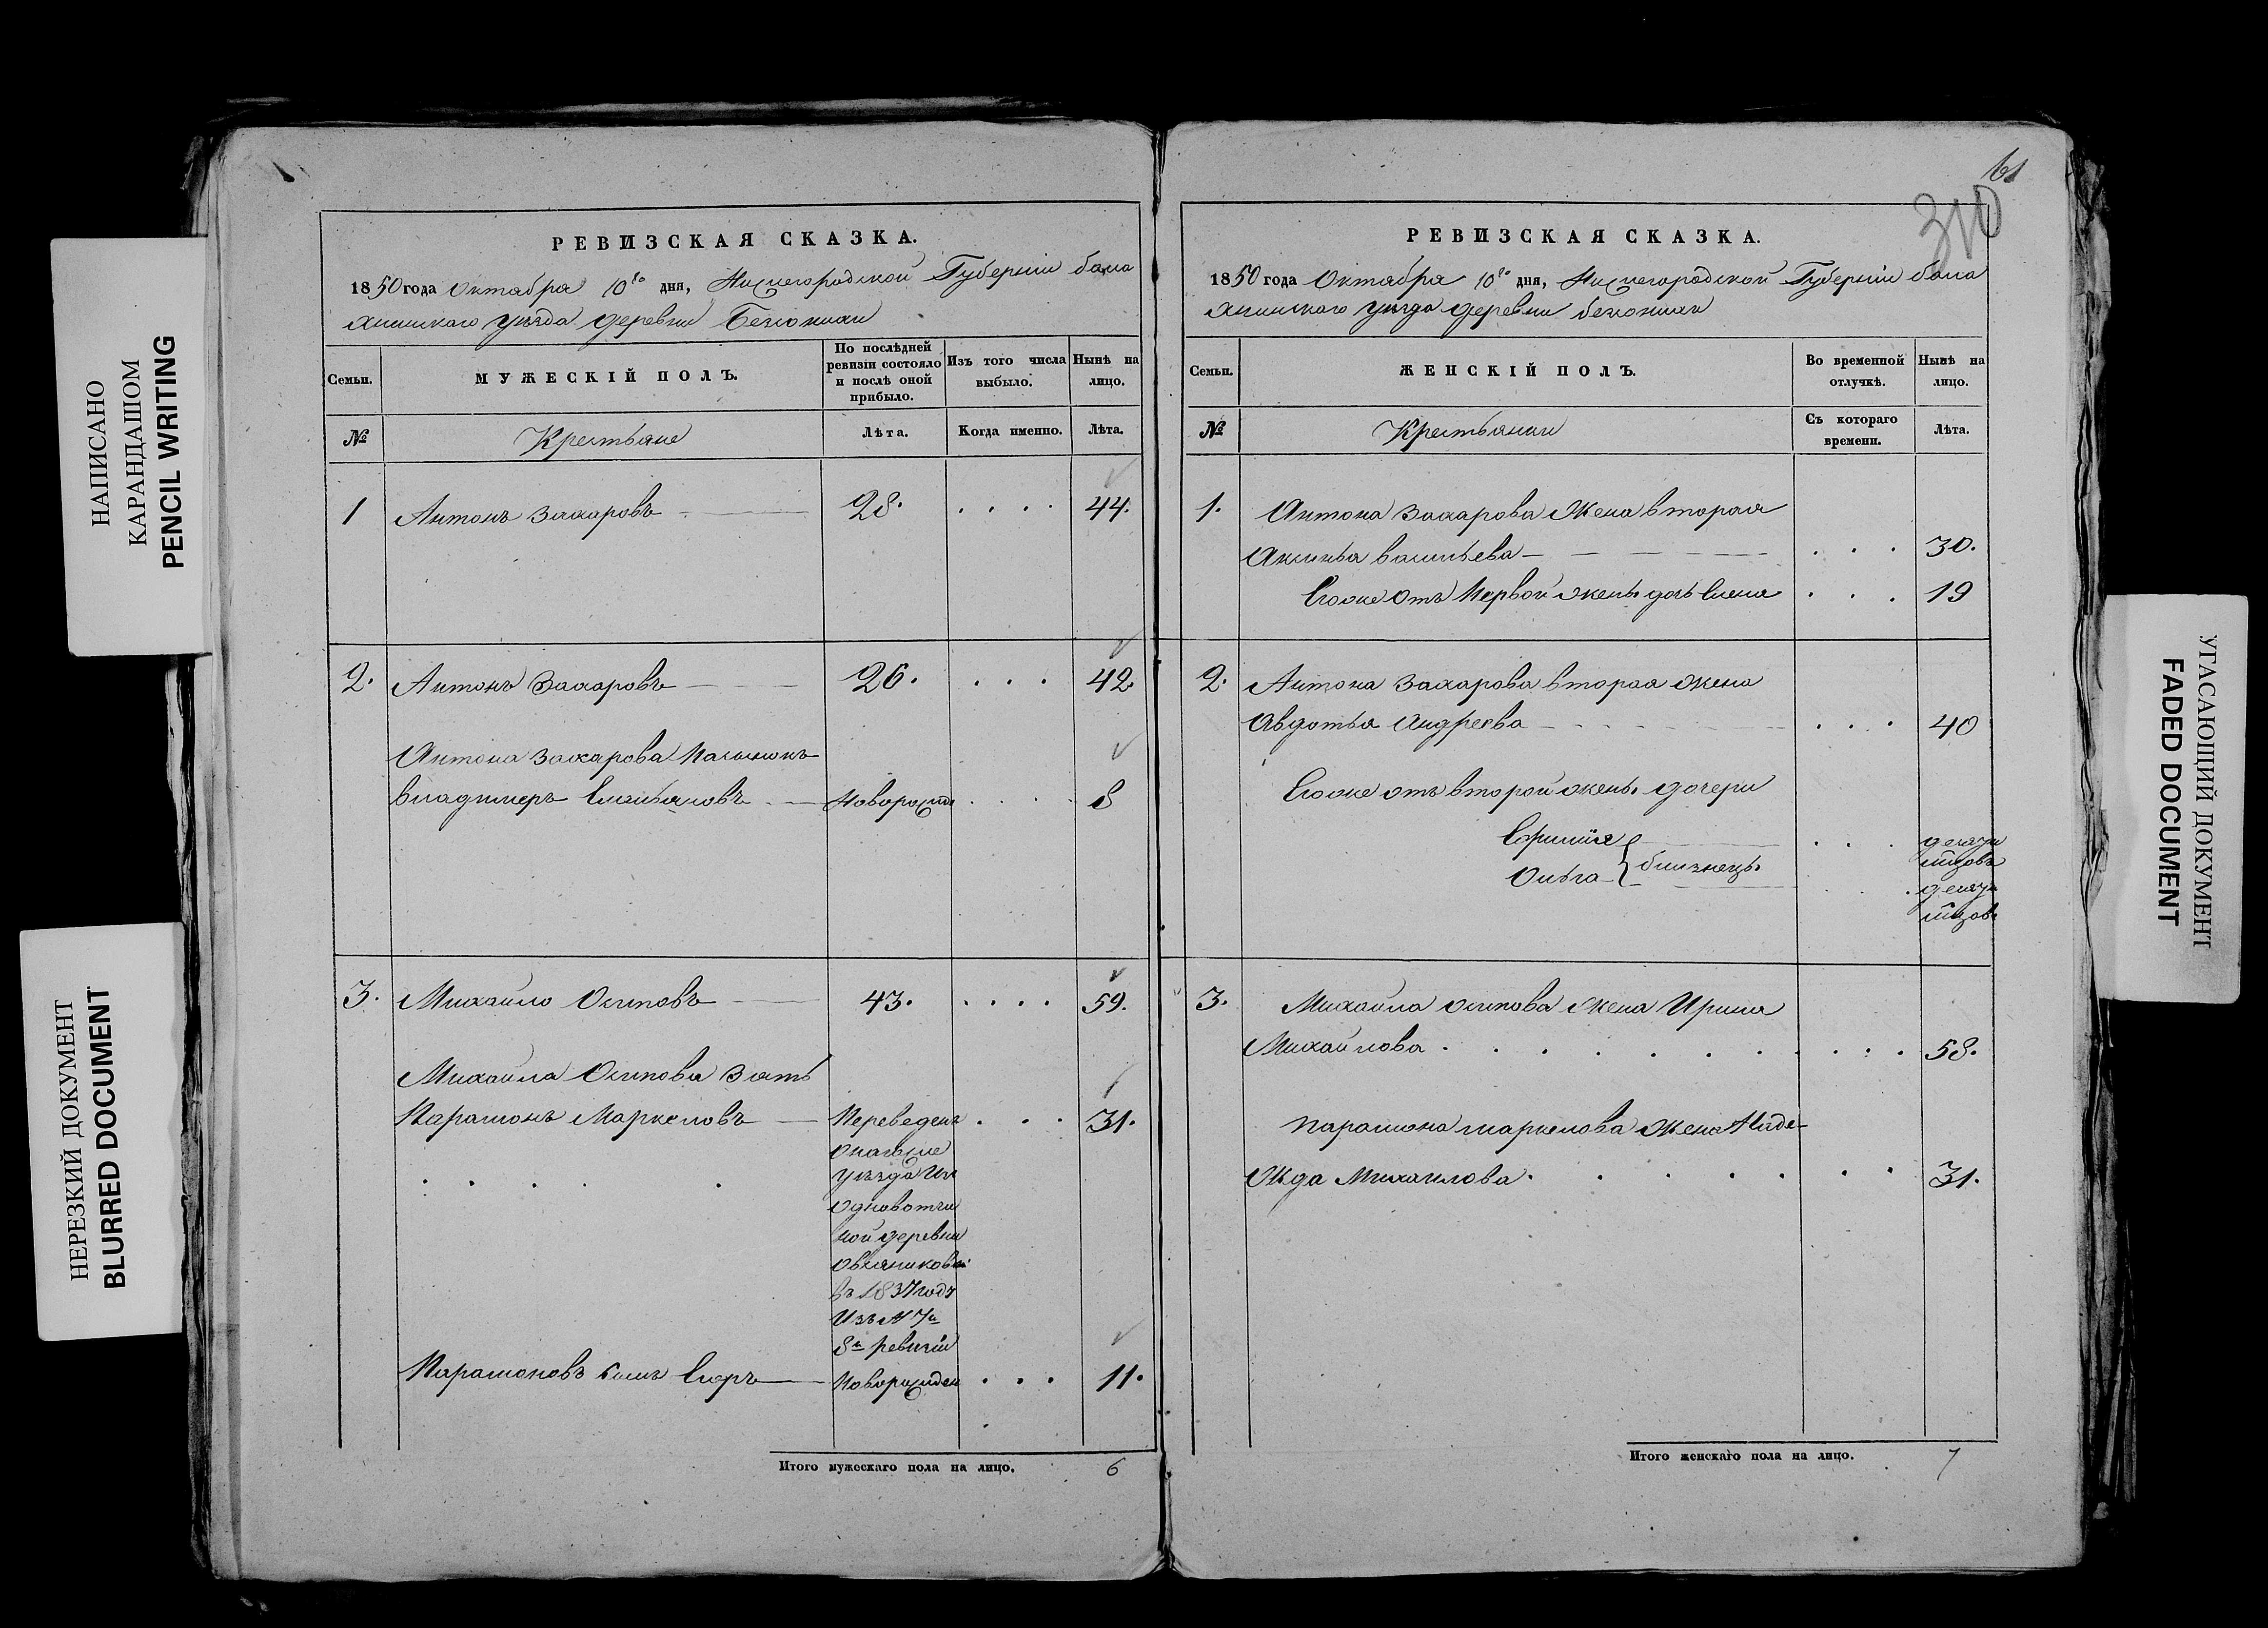 НАПИСАНО
КАРАНДАШОМ
PENCIL WRITING
НЕРЕЗКИЙ ДОКУМЕНТ
BLURRED DOCUMENT
РЕВИЗСКАЯ СКАЗКА.
1850 года Октября 10го дня, Нижегородской Губернiи бала
хнинского уѣзда деревни
Семьи.
МУЖЕСКIЙ ПОЛЪ.
По послѣдней
ревизiи состояло
и послѣ оной
прибыло.
Изъ того числа
выбыло.
Нынѣ на
лицо.
№
Крестьяне
Лѣта.
Когда именно.
Лѣта.
1 Антонъ Захаровъ 28. 44.
2. Антонъ Захаровъ 26. 42.
Антона Захарова Пасынокъ
Владимеръ Емельяновъ Новорожд 8
3. Михайло Осиповъ 43. 59.
Михайла Осипова Зять
Парамонъ Маркеловъ Переведенъ 31.
онагоже
уѣзда изъ
одновотчи
ной деревни
въ 1837 году
Изъ № 7а
8й ревизiи
Парамоновъ сынъ Егоръ Новорожден 11.
Итого мужескаго пола на лицо. 6
61
310
РЕВИЗСКАЯ СКАЗКА.
1850 года Октября 10го дня, Нижегородской Губернiи бала
хнинского уѣзда деревни
Семьи.
ЖЕНСКIЙ ПОЛЪ.
Во временной
отлучкѣ.
Нынѣ на
лицо.
№
Крестьянки
Съ котораго
времени.
Лѣта.
1. Антона Захарова Жена вторая
Аксинья Васильева 30.
Егоже отъ Первой жены дочь Елена 19
2. Антона Захарова вторая жена
Авдотья Андреева 40
Егоже отъ второй жены дочери
Ефимiя
Ольга } близнецы
3. Михайла Осипова Жена Ирина
Михайлова 58.
Парамона Маркелова Жена Наде-
жда Михаилова 31.
Итого женскаго пола на лицо. 7
УГАСАЮЩИЙ ДОКУМЕНТ
FADED DOCUMENT